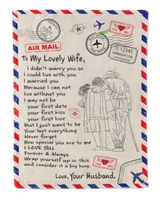 AIR MAIL
To My Lovely Wife,
I didn't marry you so
I could live with you
I married you
Because I can not
live without you
I may not be
your first date
your first kiss
your first love
But I just want to be
Your last everything
Never forget
How special you are to me
I LOVE YOU
Forever & Always
Wrap yourself up in this
and consider it a big hug.
Love, Your Husband.